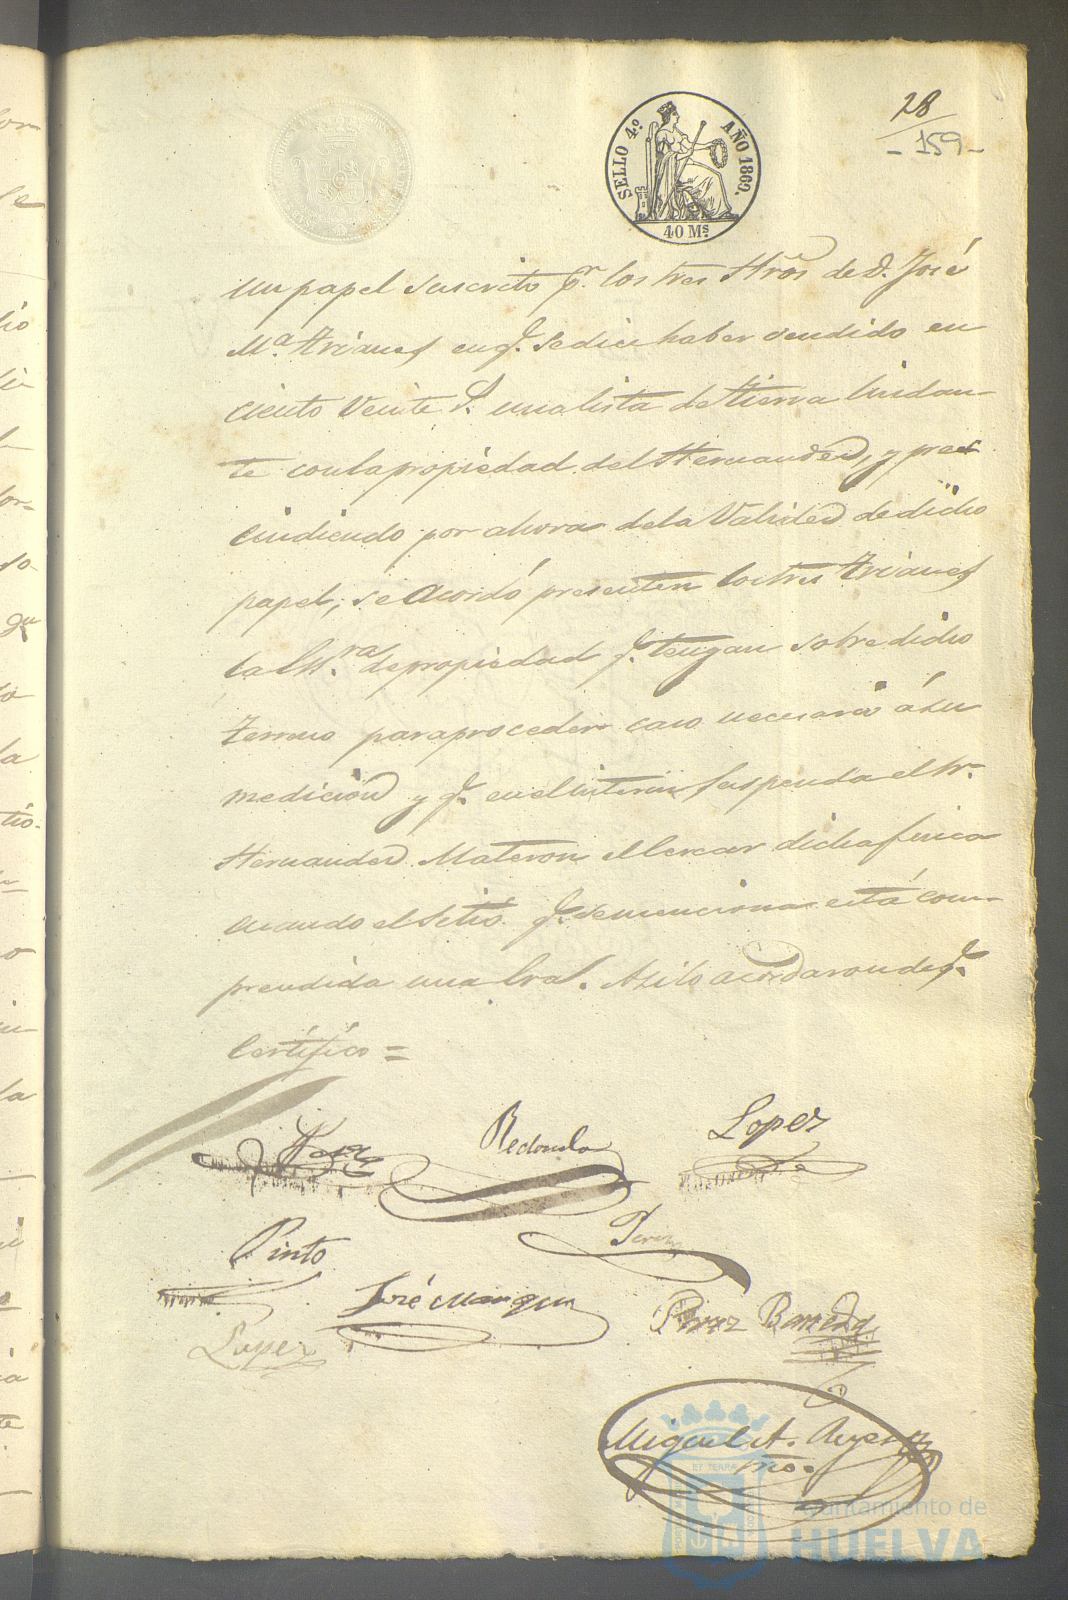 28
- 159 -
SELLO 4.º AÑO 1869.
40 Ms.
un papel suscrito pr. los tres Hros de D. José
Mª. Trianes en q. se dice haber vendido en
ciento veinte una lista de tierra lindan-
te con la propiedad del Hernandez, y pres
cindiendo por ahora de la Validez de dicho
papel, se acordó presenten los tres Trianes
la de propiedad q. tengan sobre dicho
terreno para proceder caso necesario á su
medicion y q. en el interin suspenda el Sr.
Hernandez Materon el cercar dicha finca
cuando el sitio q. se menciona está com-
prendida una Asi lo acordaron de q.
Certifico =
Redondo
Lopez
Pinto
Perez
José Marquez
Perez Barreda
Lopez
Miguel A.
Srio.
ET TERRA
Ayuntamiento de
HUELVA